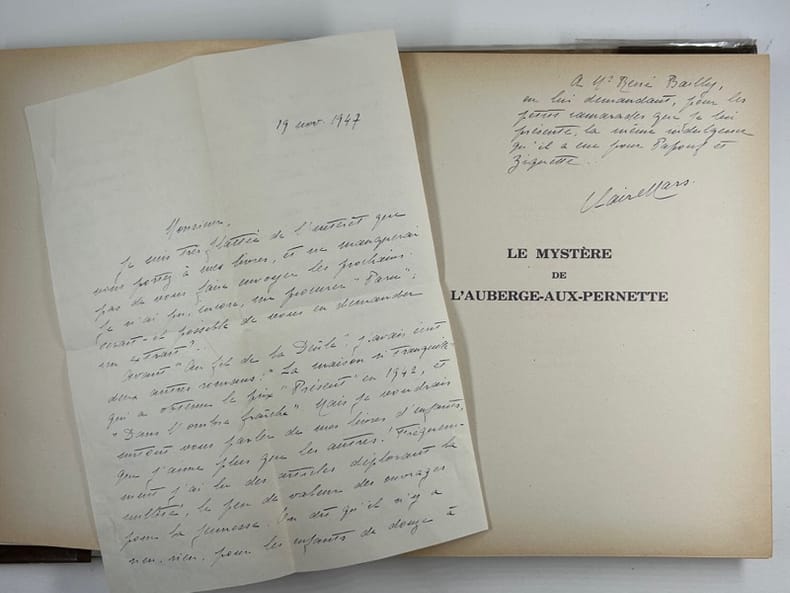 19 nov. 1947
Monsieur,
Je suis très flattée de l'intérêt que
vous portez à mes livres, et ne manquerai
pas de vous faire envoyer les prochains.
Je n'ai pu, encore, me procurer "Paru":
serait-il possible de vous en demander
un extrait?
Avant "Au fil de la Deûle" j'avais écrit
deux autres romans: "La maison si tranquille"
qui a obtenu le prix "Présent" en 1942, et
"Dans l'ombre fraîche". Mais je voudrais
surtout vous parler de mes livres d'enfants,
que j'aime plus que les autres! Fréquem-
ment j'ai lu des articles déplorant la
le peu de valeur des ouvrages
pour la jeunesse. On dit qu'il n'y a
rien, rien, pour les enfants de douze à
A Mr René Bailly,
en lui demandant, pour les
petits camarades que je lui
présente, la même indulgence
qu'il a eue pour Papouf et
Ziquette.
Claire Mars.
LE MYSTÈRE
DE
L'AUBERGE-AUX-PERNETTE